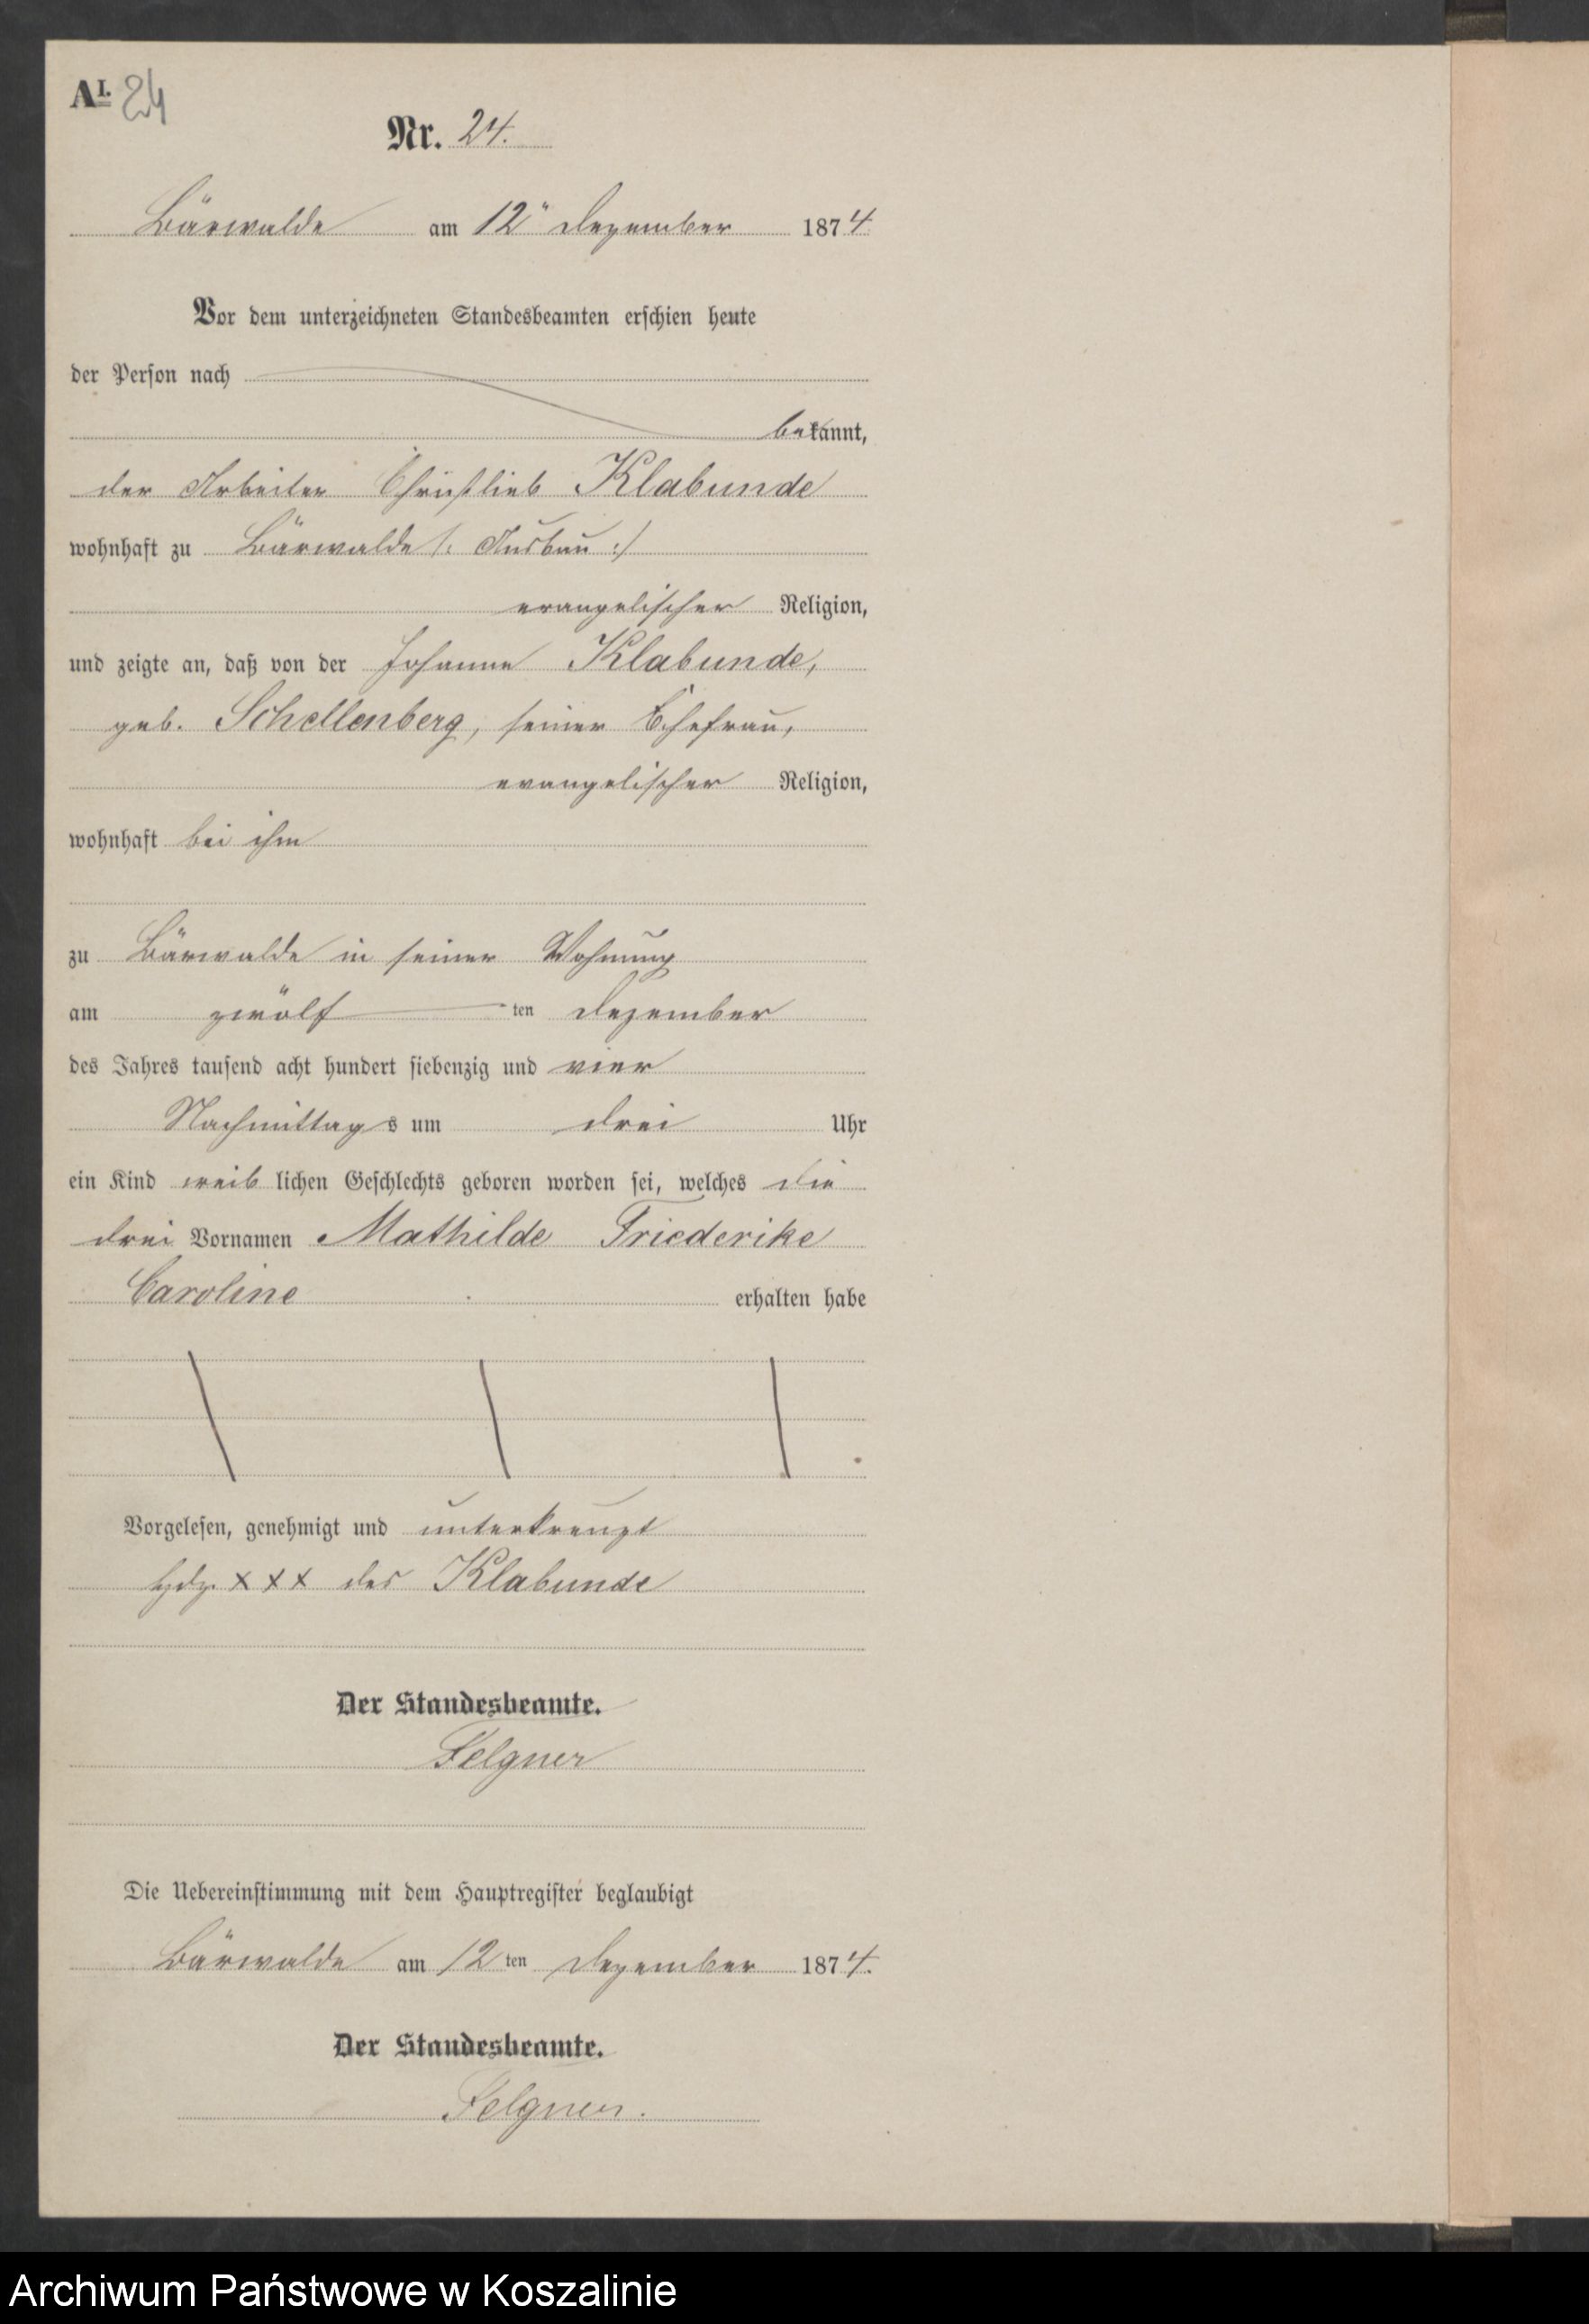 AI. 24
Nr. 24.
Bärwalde am 12" Dezember 1874.
Vor dem unterzeichneten Standesbeamten erschien heute
der Person nach
bekannt,
der Arbeiter Christlieb Klabunde
wohnhaft zu Bärwalde /: Ausbau :/
evangelischer Religion,
und zeigte an, daß von der Johanne Klabunde,
geb. Schellenberg, seiner Ehefrau,
evangelischer Religion,
wohnhaft bei ihm
zu Bärwalde in seiner Wohnung
am zwölf ten Dezember
des Jahres tausend acht hundert siebenzig und vier
Nachmittags um drei Uhr
ein Kind weiblichen Geschlechts geboren worden sei, welches die
drei Vornamen Mathilde Friederike
Caroline erhalten habe
Vorgelesen, genehmigt und unterkreuzt
Hdz. XXX des Klabunde
Der Standesbeamte.
Felgner
Die Uebereinstimmung mit dem Hauptregister beglaubigt
Bärwalde am 12ten Dezember 1874.
Der Standesbeamte.
Felgner.
Archiwum Państwowe w Koszalinie